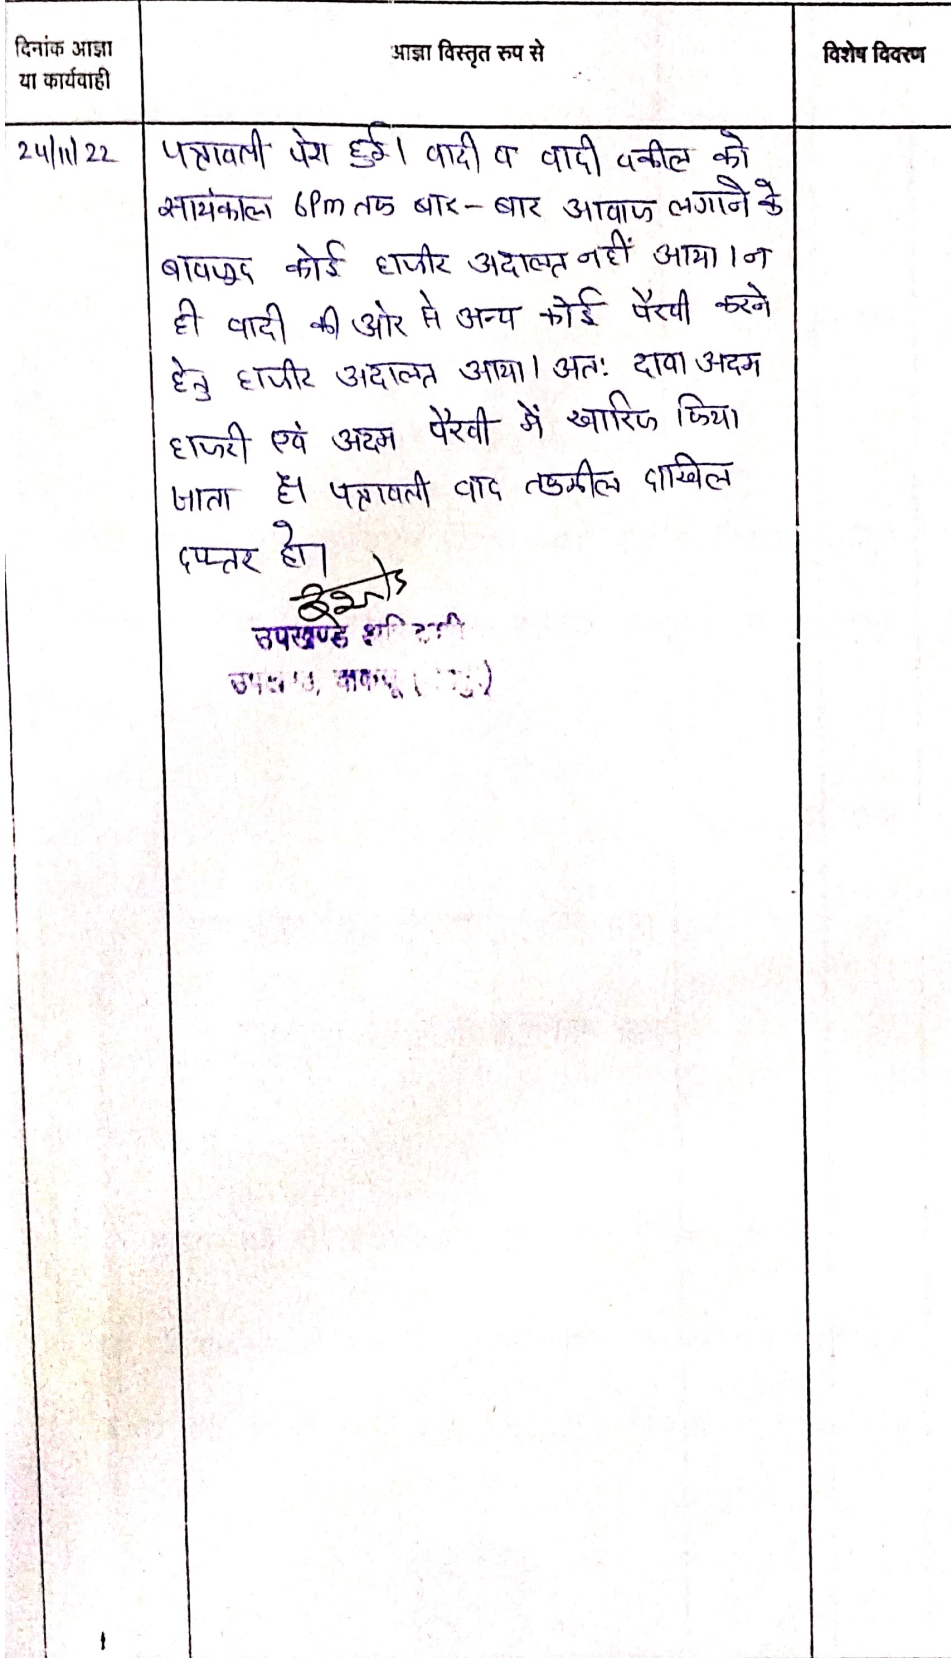 दिनांक आज्ञा
या कार्यवाही
आज्ञा विस्तृत रुप से
विशेष विवरण
24/11/22
पत्रावली पेश हुई। वादी व वादी वकील को
सायंकाल 6Pm तक बार-बार आवाज लगाने के
बावजुद कोई हाजीर अदालत नहीं आया। न
ही वादी की ओर से अन्य कोई पैरवी करने
हेतु हाजीर अदालत आया। अतः दावा अदम
हाजरी एवं अदम पैरवी में खारिज किया
जाता है। पत्रावली वाद तकमील दाखिल
दफ्तर हो।
उपखण्ड